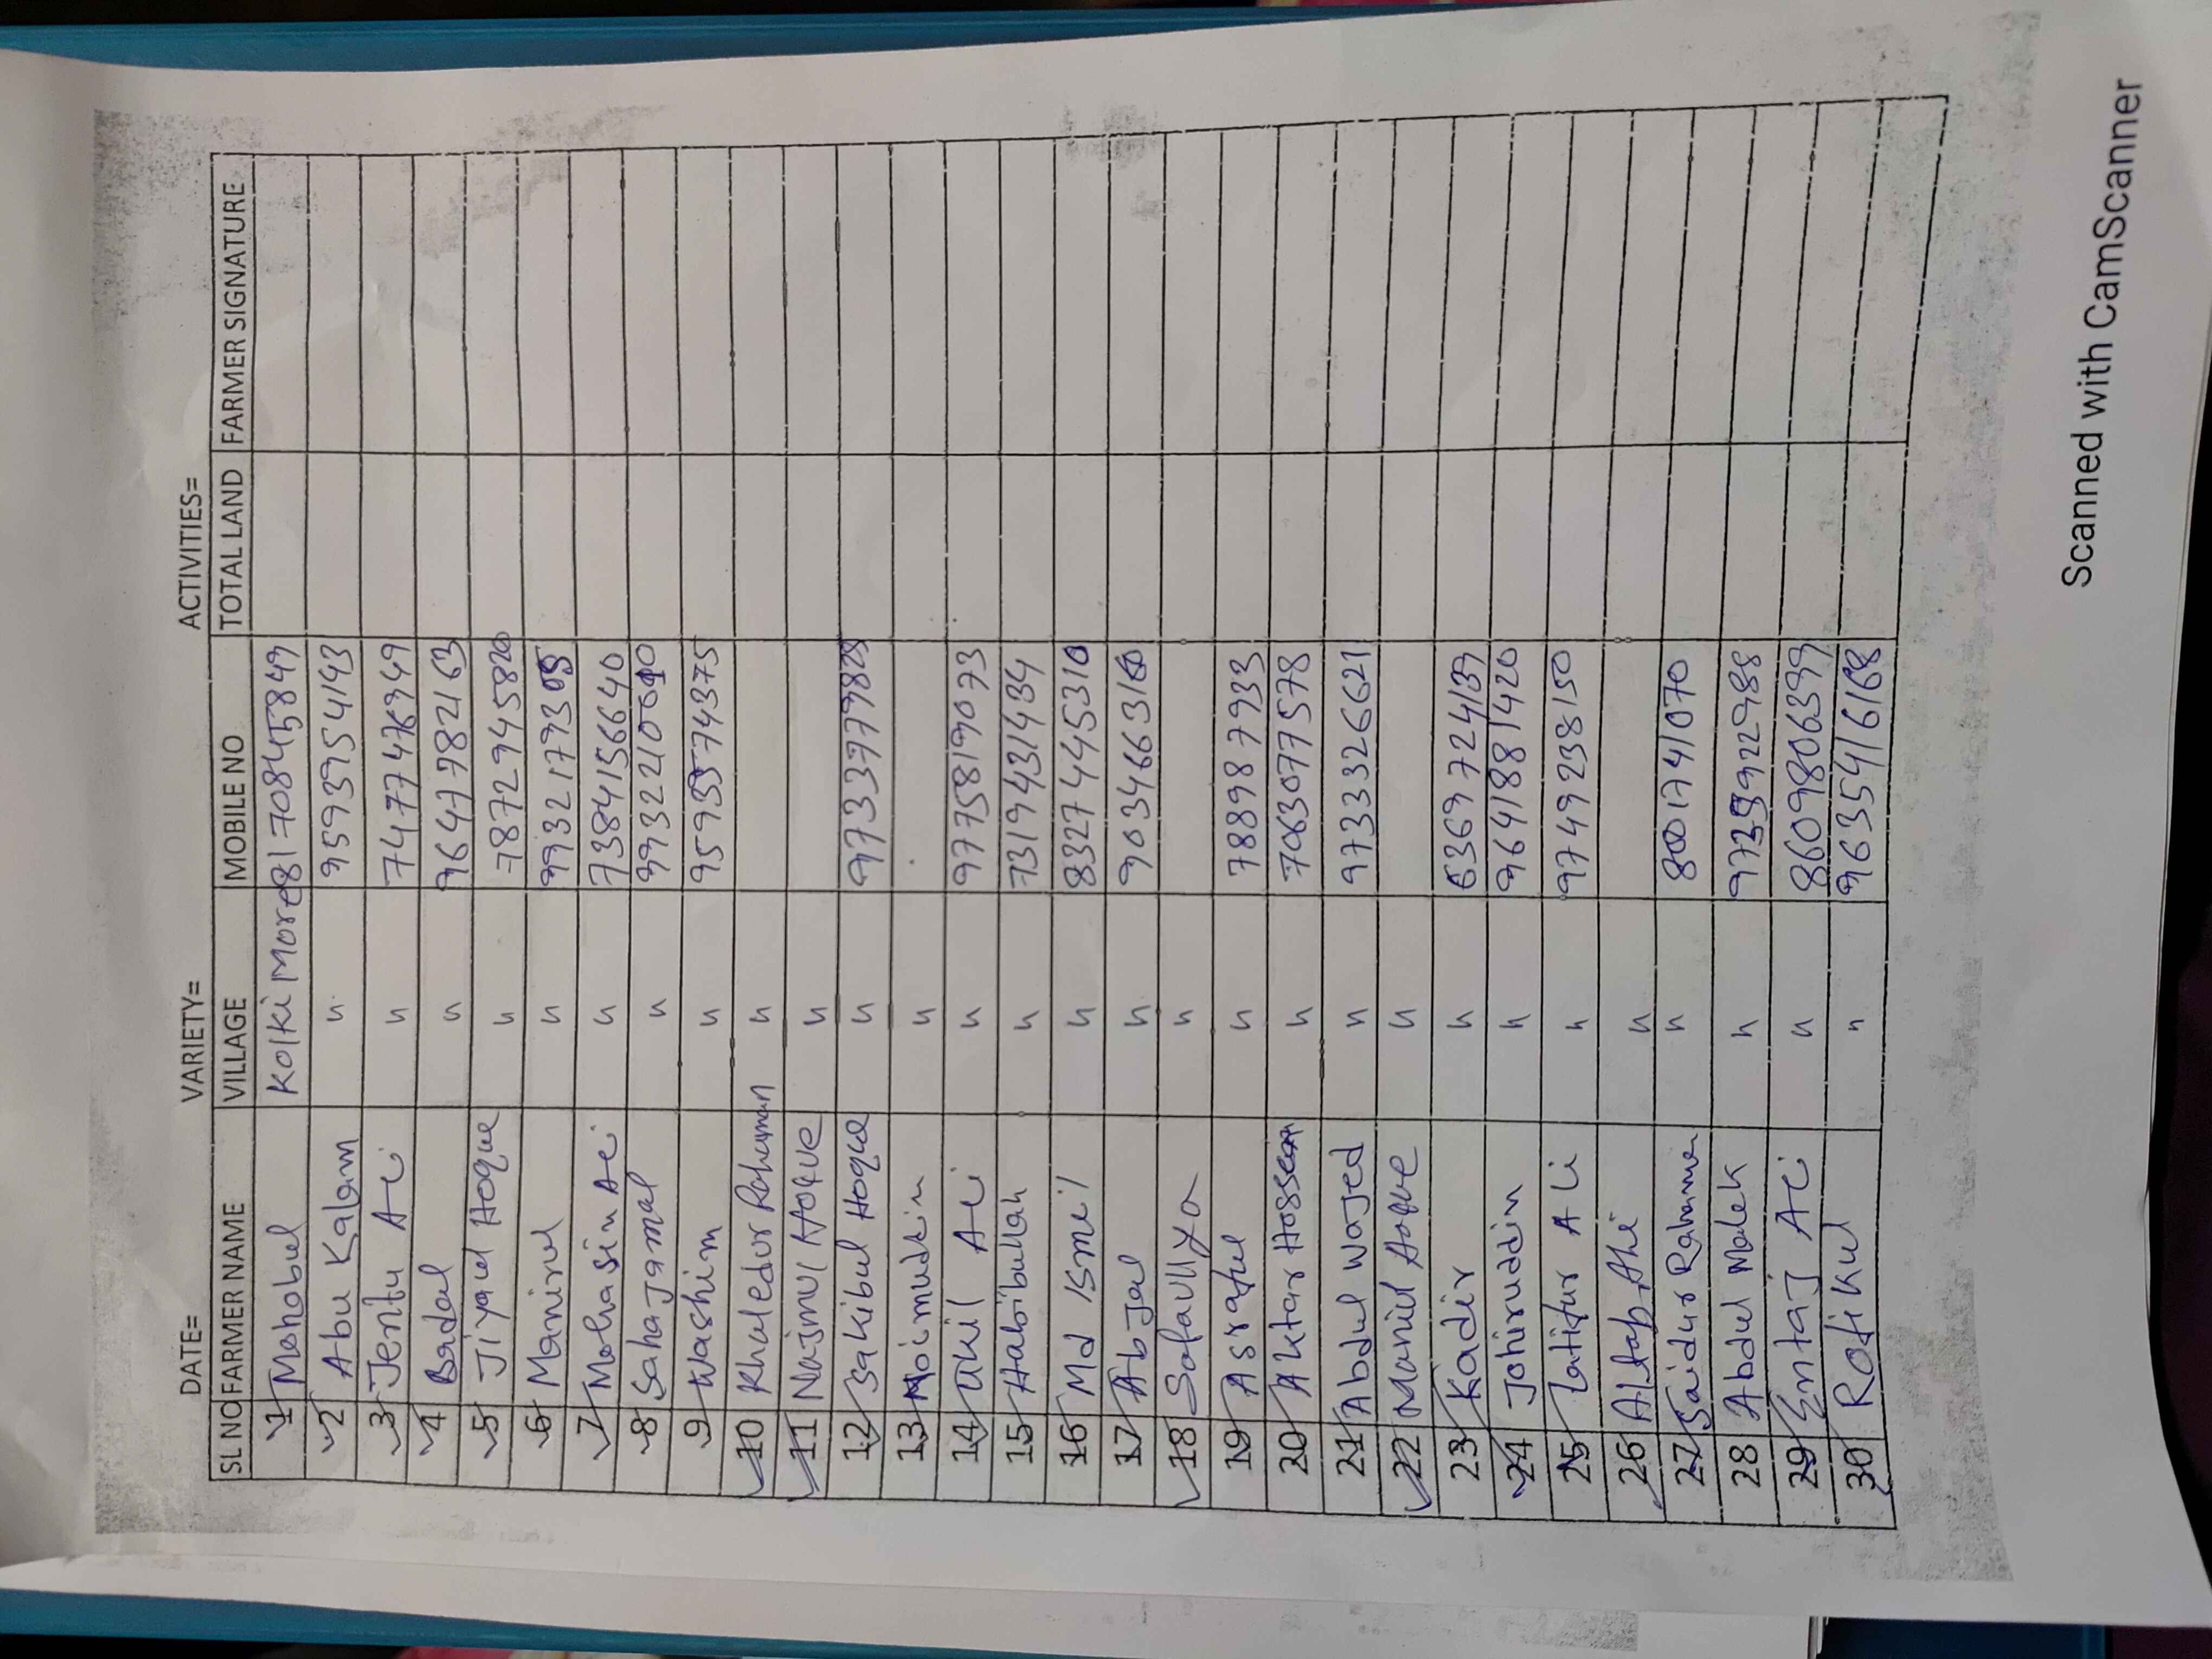 DATE= VARIETY= ACTIVITIES=
SL NO FARMER NAME VILLAGE MOBILE NO TOTAL LAND FARMER SIGNATURE
1 Mohobul Kolki More 8170845849
2 Abu Kalam " 9593954143
3 Jentu Ali " 7477476949
4 Badal " 9647782163
5 Jiyaul Hoque " 7872945820
6 Manirul " 9932179308
7 Mohasin Ali " 7384156640
8 Sahajamal " 9932210690
9 Washim " 9593574375
10 Khaledur Rahuman "
11 Najmul Hoque "
12 Sakibul Hoque " 9733779829
13 Moimuddin "
14 Ukil Ali " 9775819073
15 Habibullah " 7319431434
16 Md Ismil " 8327445310
17 Abjal " 9034663160
18 Sofaullya "
19 Asraful " 7889887933
20 Aktar Hossen " 7063077578
21 Abdul Wajed " 9733326621
22 Manirul Hoque "
23 Kadir " 6369724139
24 Johiruddin " 9641881420
25 Latifur Ali " 9749238150
26 Altab Ali "
27 Saidur Rahaman " 8001741070
28 Abdul Malek "
29 Entaj Ali " 8609806399
30 Rofikul " 9635416168
Scanned with CamScanner